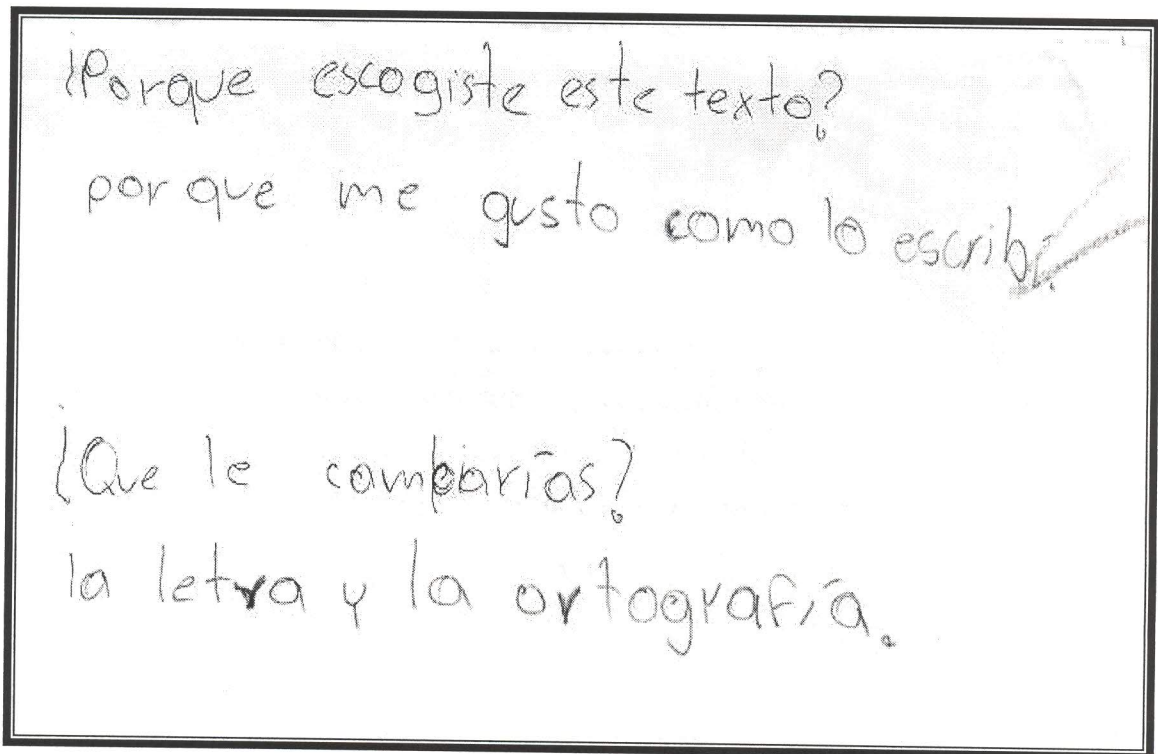 ¿Porque escogiste este texto?
por que me gusto como lo escribí.
¿Que le cambiarías?
la letra y la ortografía.